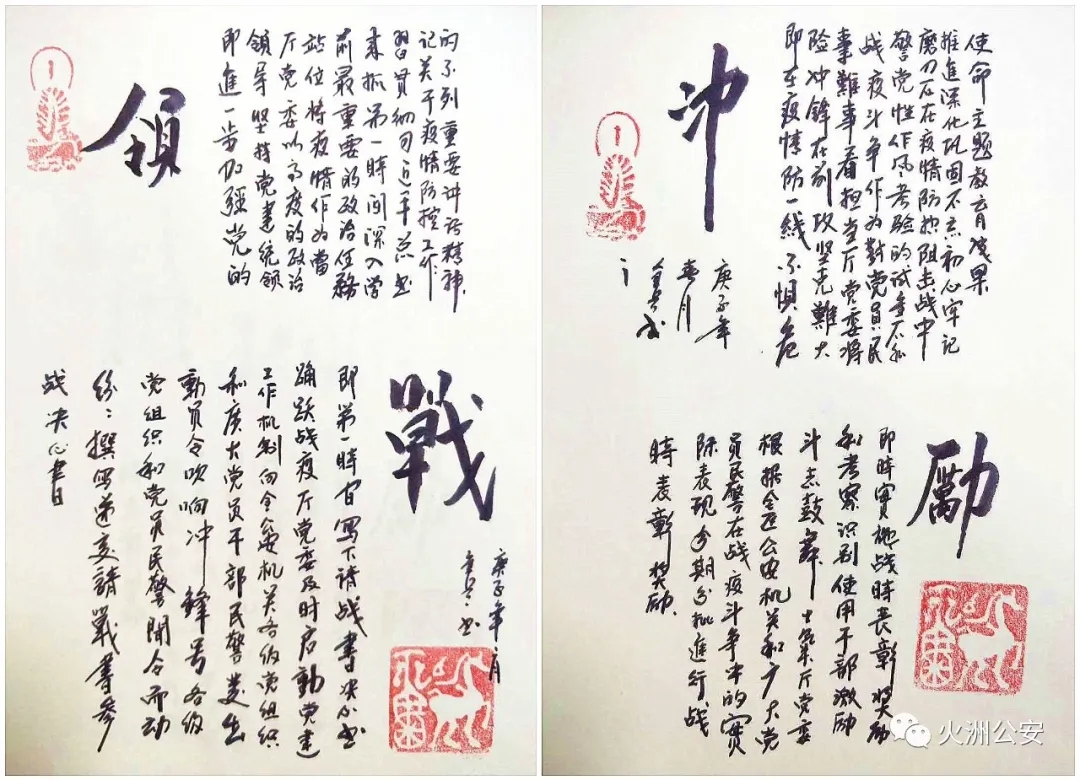 領
即進一步加强党的
領导坚持党建统领
厅党委以高度的政治
站位将疫情作为當
前最重要的政治任務
来抓第一時间深入学
習贯彻习近平总书
记关于疫情防控工作
的系列重要讲话精神
戰
即第一時间写下请战書决心书
踊跃战疫厅党委及时启動党建
工作机制向全區机关各级党组织
和廣大党员干部民警发出
動员令吹响冲鋒号各级
党组织和党员民警闻令而动
纷〻撰写递交請戰書參
战决心書
庚子年月
冲
即在疫情防一线不惧危
险冲锋在前攻坚克難大
事難事看担当厅党委将
战疫斗争作为對党员民
警党性作风考验的试金石和
磨刀石在疫情防控阻击战中
推進深化巩固不忘初心牢记
使命主题教育成果
庚子年
春月
勵
即時實施战時表彰奖励
和考察识别使用干部激励
斗志鼓舞士氣厅党委
根据全區公安机关和广大党
员民警在战疫斗争中的實
际表现分期分批進行战
時表彰奖励
火洲公安